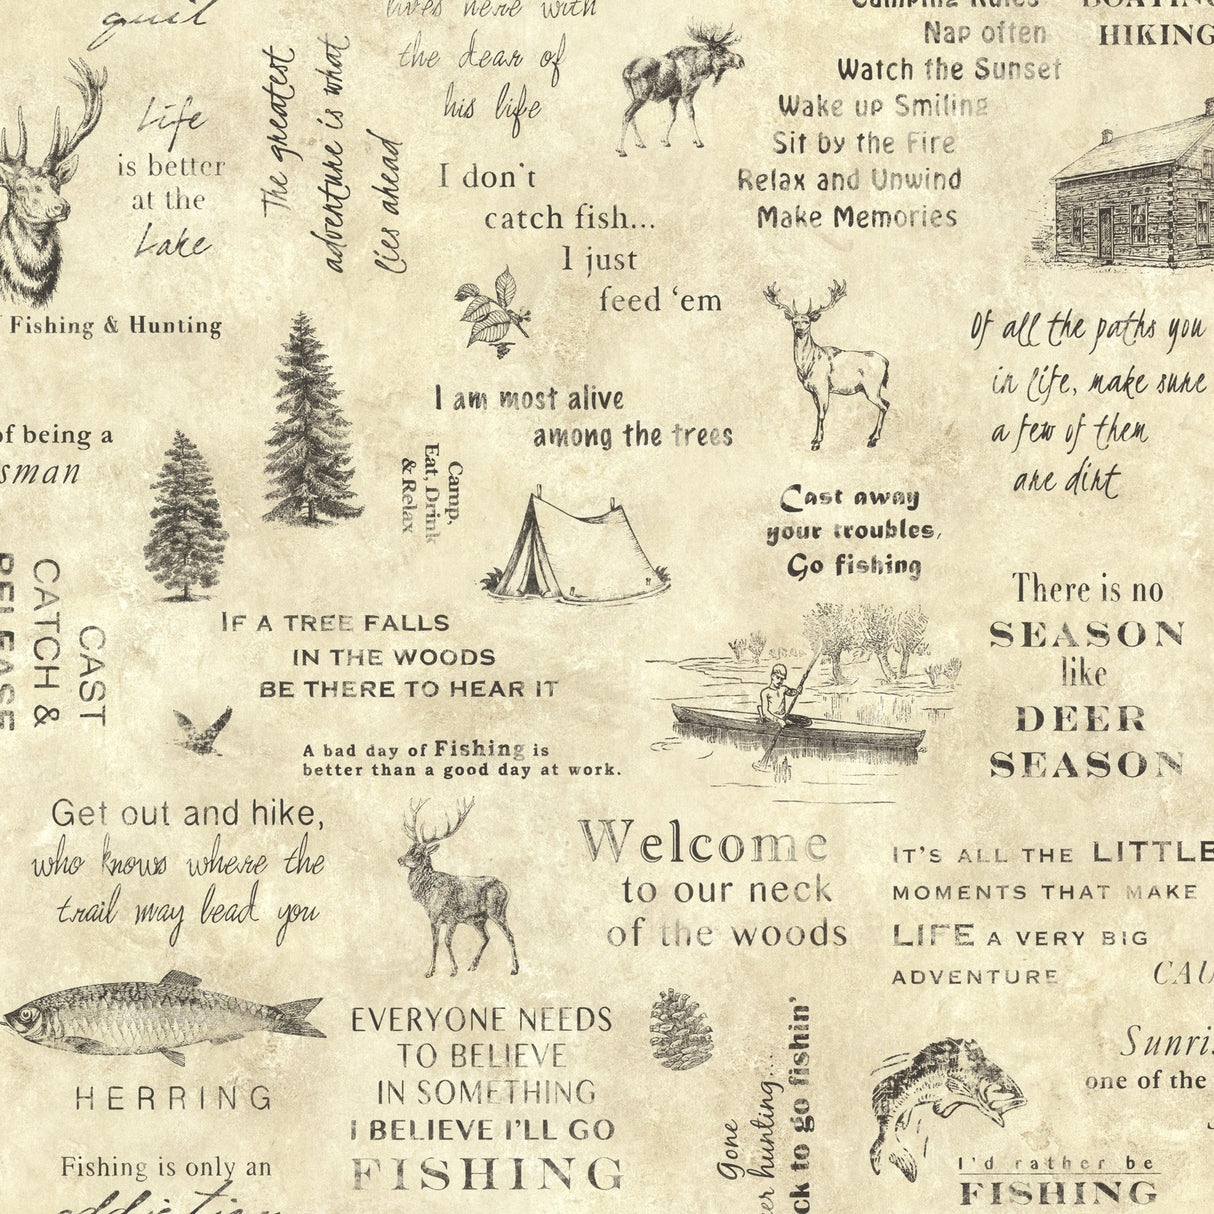 quil
lives here with
the dear of
his life
Camping Rules
Nap often
Watch the Sunset
Wake up Smiling
Sit by the Fire
Relax and Unwind
Make Memories
BOATING
HIKING
Life
is better
at the
Lake
The greatest
adventure is what
lies ahead
I don't
catch fish...
I just
feed ‘em
Fishing & Hunting
Of all the paths you
in life, make sure
a few of them
are dirt
I am most alive
among the trees
of being a
sman
Camp,
Eat, Drink
& Relax
Cast away
your troubles,
Go fishing
CAST
CATCH &
RELEASE
There is no
SEASON
like
DEER
SEASON
IF A TREE FALLS
IN THE WOODS
BE THERE TO HEAR IT
A bad day of Fishing is
better than a good day at work.
Get out and hike,
who knows where the
trail may lead you
Welcome
to our neck
of the woods
IT'S ALL THE LITTLE
MOMENTS THAT MAKE
LIFE A VERY BIG
ADVENTURE
CAU
HERRING
EVERYONE NEEDS
TO BELIEVE
IN SOMETHING
I BELIEVE I'LL GO
FISHING
Gone
er hunting....
ck to go fishin'
Sunris
one of the
Fishing is only an
addiction
I'd rather be
FISHING